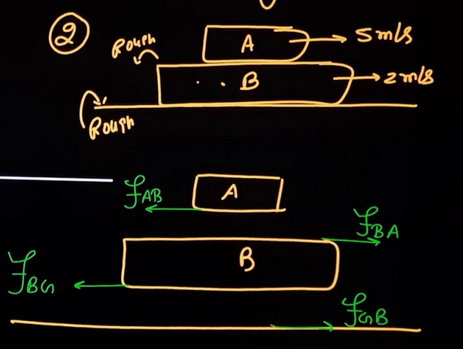 ②
Rough
A
5m/s
B
2m/s
Rough
f_AB
A
f_BA
B
f_BG
f_GB